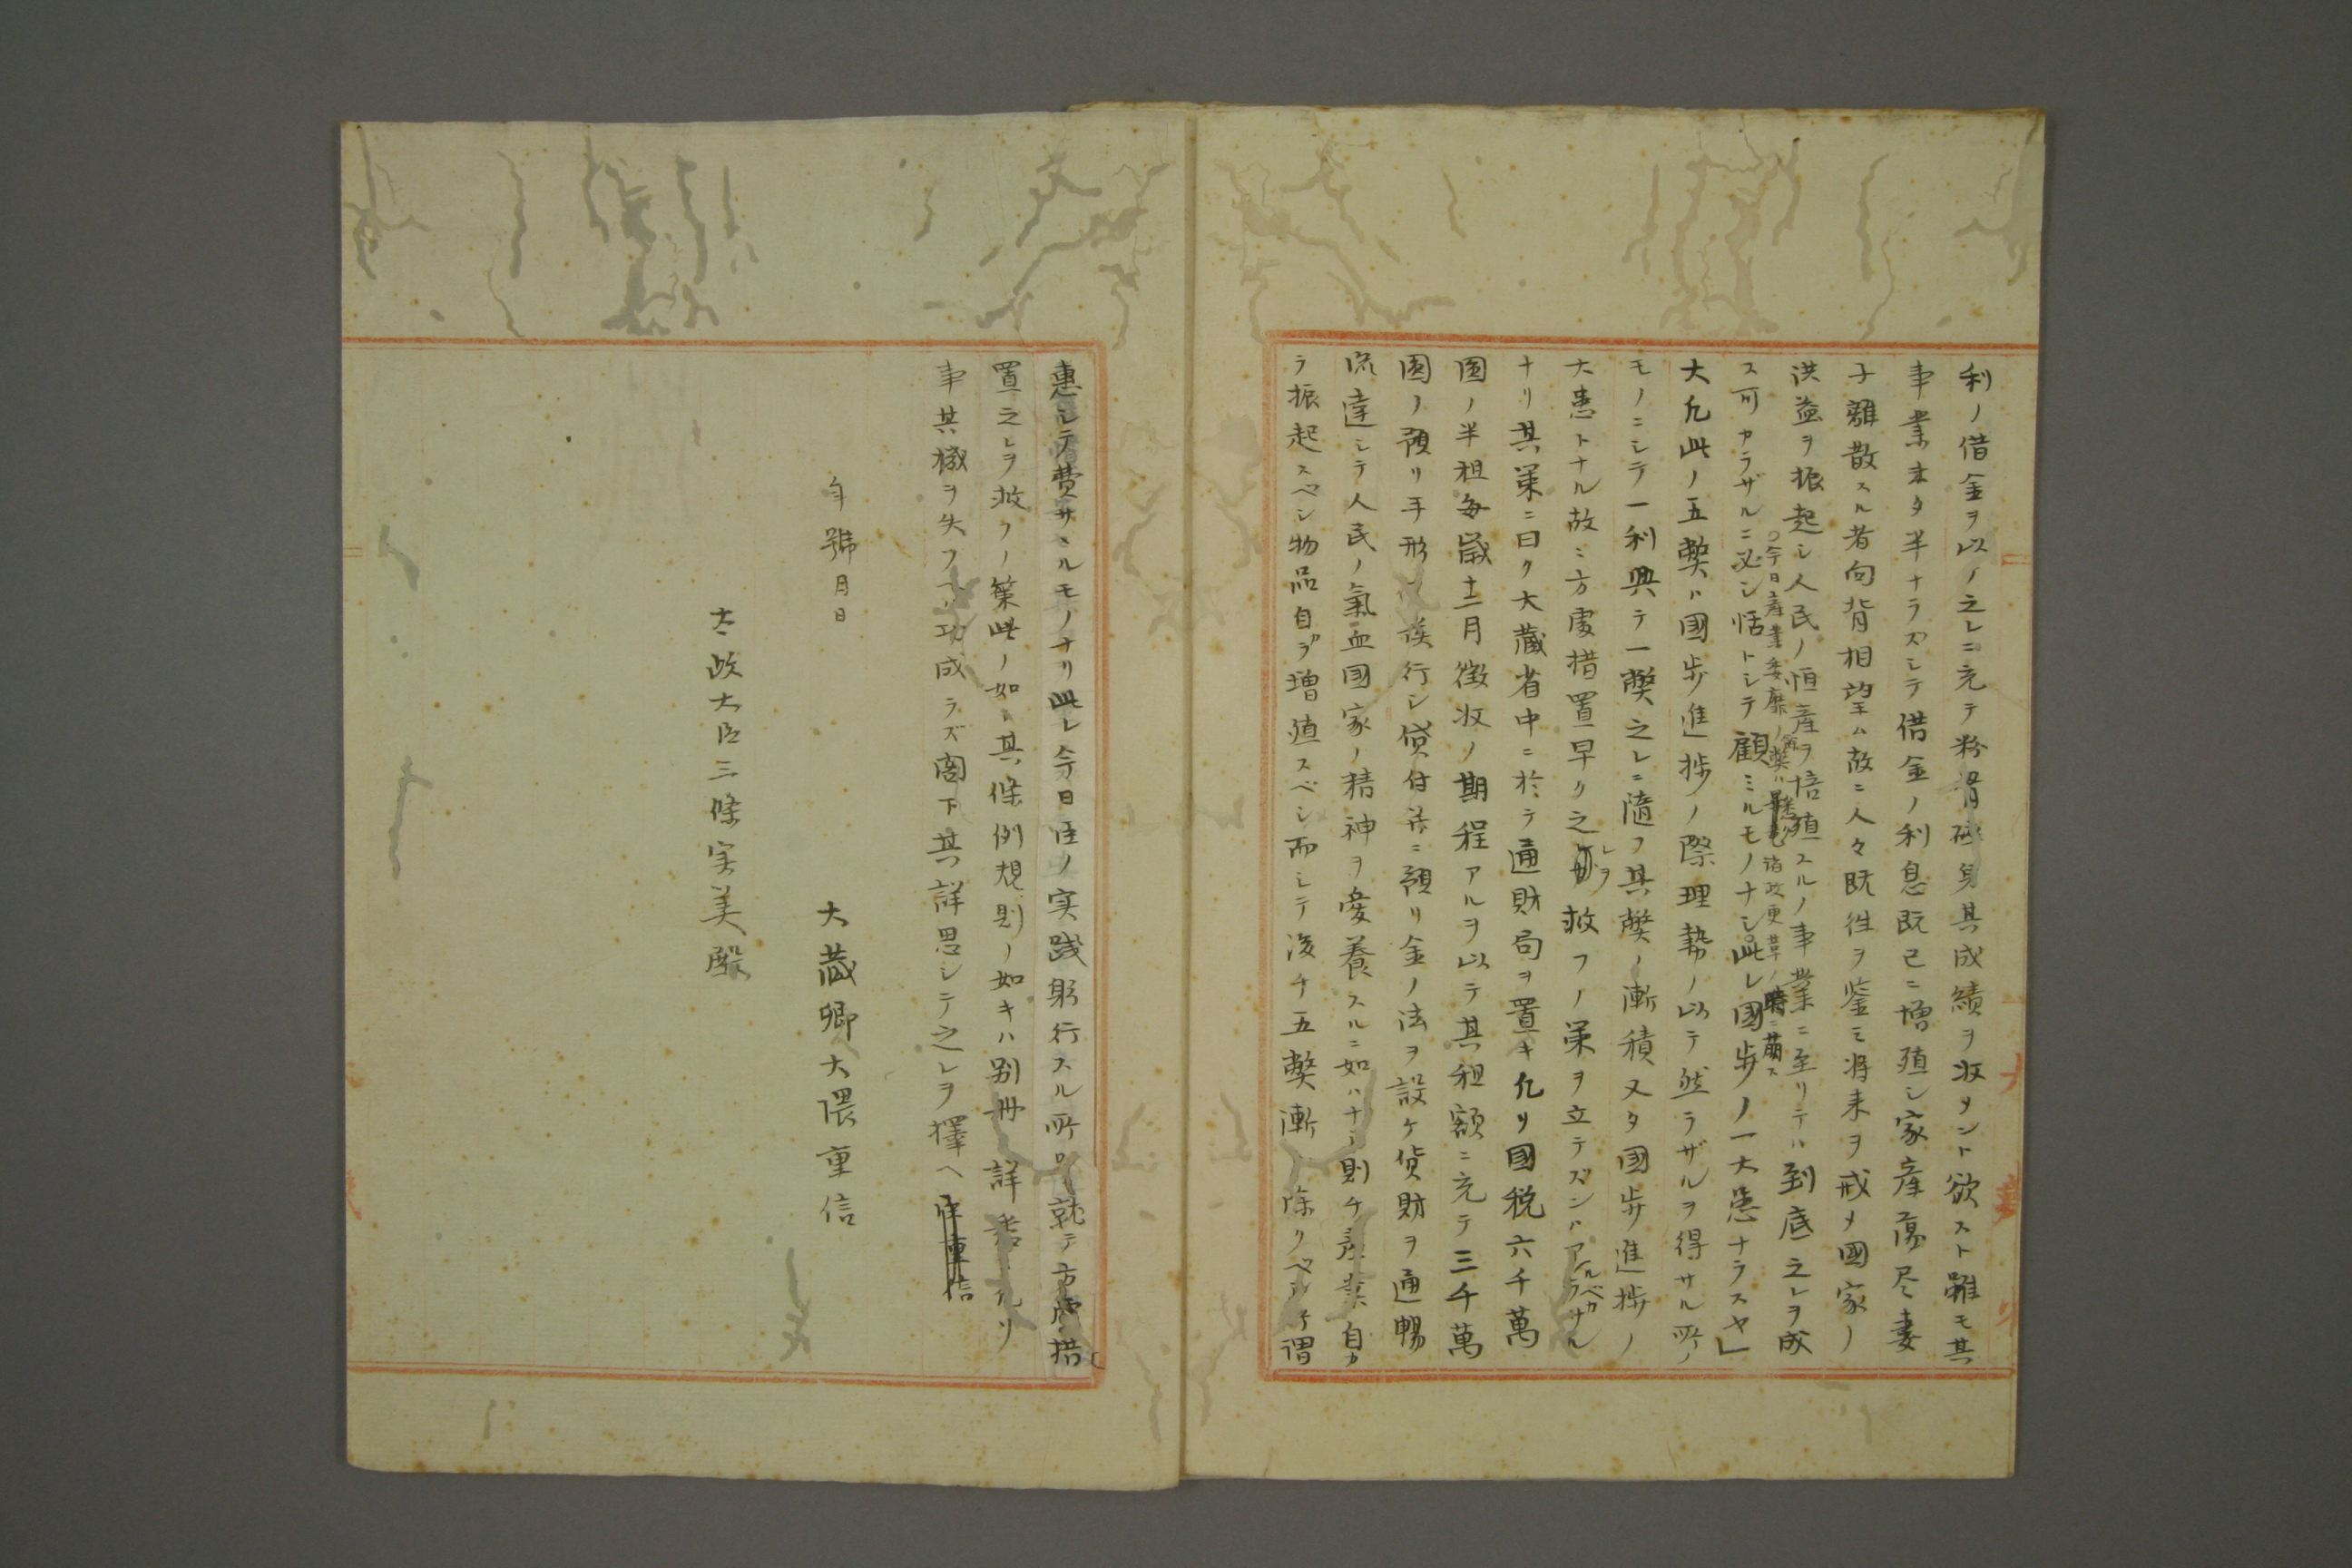 利ノ借金ヲ以ノ之レニ充テ粉骨砕身其成績ヲ収メント欲スト雖モ其
事業未タ半ナラズシテ借金ノ利息既已ニ増殖シ家産蕩尽妻
子離散スル者向背相望ム故ニ人々既往ヲ鑒ミ将来ヲ戒メ國家ノ
洪益ヲ振起シ人民ノ恒産ヲ培殖スルノ事業ニ至リテハ到底之レヲ成
○今日産業委靡ノ弊ハ諸政更革ノ時ニ萠ス
ス可カラザルニ必シ恬トシテ顧ミルモノナシ此レ國歩ノ一大患ナラスヤ」
大凡此ノ五弊ハ國歩進捗ノ際理勢ノ以テ然ラザルヲ得サル所ノ
モノニシテ一利興テ一弊之レニ隨フ其弊ノ漸積又タ國歩進捗ノ
大患トナル故ニ方處措置早ク之レヲ救フノ策ヲ立テズンハアルベカラサル
ナリ其策ニ曰ク大藏省中ニ於テ通財局ヲ置キ凡リ國税六千萬
圓ノ半租毎歳十二月徴収ノ期程アルヲ以テ其租額ニ充テ三千萬
圓ノ預リ手形ヲ発行シ貸付并ニ預リ金ノ法ヲ設ケ貨財ヲ通暢
流達シテ人民ノ氣血國家ノ精神ヲ愛養スルニ如ハナシ則チ産業自カ
ラ振起スベシ物品自カラ増殖スベシ而シテ後チ五弊漸ク除クベシ所謂
惠シテ費サヾルモノナリ此レ今日臣ノ実践躬行スル所ロ就テ方處措
置之レヲ救フノ策此ノ如シ其條例規則ノ如キハ別冊詳悉セリ
事其機ヲ失フヘハ功成ラズ閣下其詳思シテ之レヲ擇ヘ 臣重信
年號月日
大蔵卿大隈重信
太政大臣三條実美殿